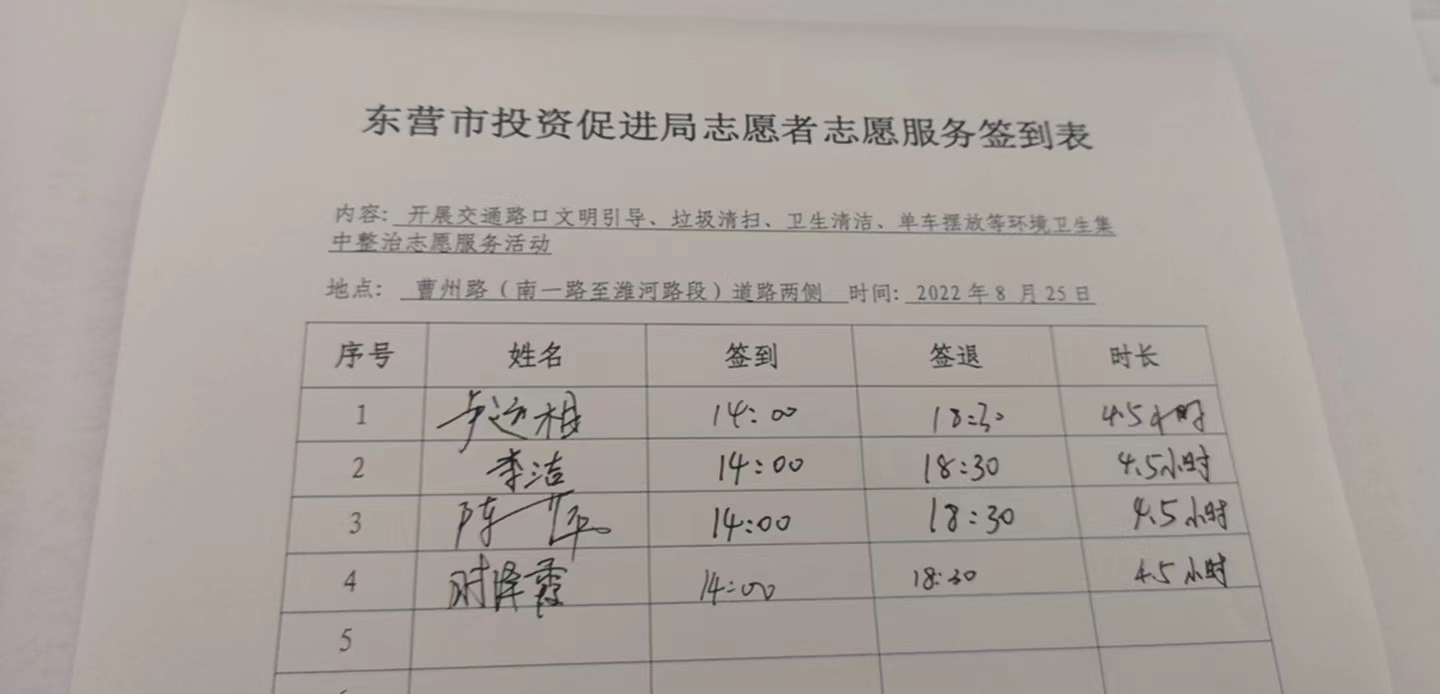 东营市投资促进局志愿者志愿服务签到表
内容: 开展交通路口文明引导、垃圾清扫、卫生清洁、单车摆放等环境卫生集
中整治志愿服务活动
地点: 曹州路（南一路至潍河路段）道路两侧 时间: 2022年8月25日
序号 姓名 签到 签退 时长
1 14:00 18:30 4.5小时
2 李洁 14:00 18:30 4.5小时
3 陈 14:00 18:30 4.5小时
4 时泽霞 14:00 18:30 4.5小时
5